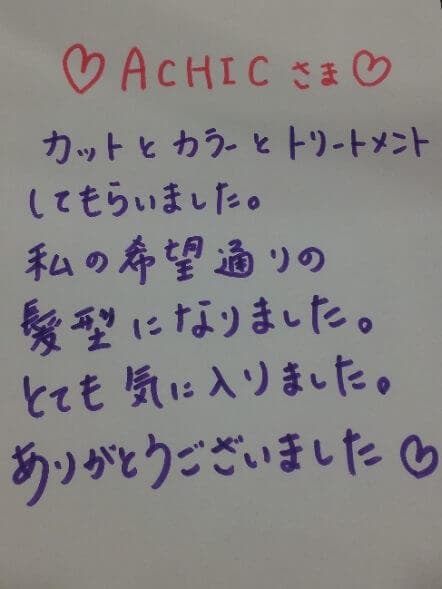 ♡ACHICさま♡
カットとカラーとトリートメント
してもらいました。
私の希望通りの
髪型になりました。
とても気に入りました。
ありがとうございました♡